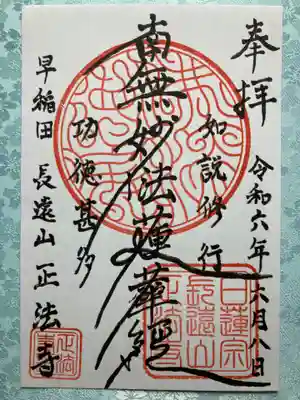 奉拝
令和六年六月八日
如説修行
南無妙法蓮華経
功徳甚多
早稲田 長遠山 正法寺
日蓮宗
長遠山
正法寺